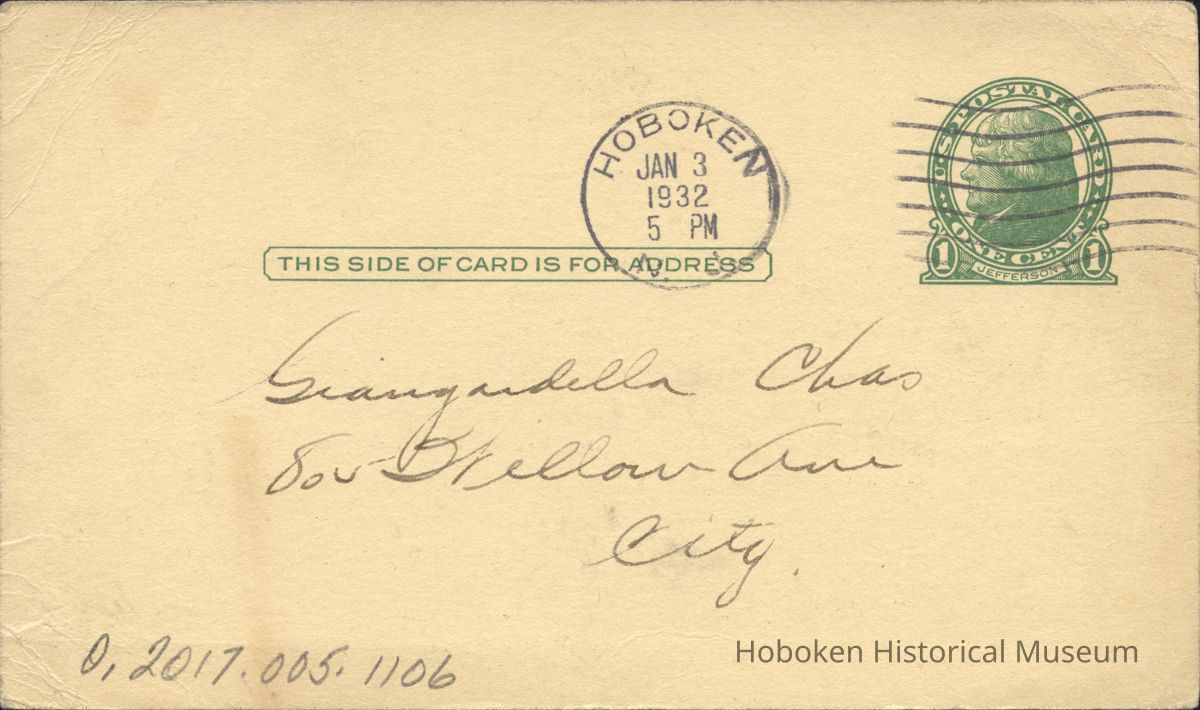 HOBOKEN
JAN 3
1932
5 PM
N. J.
U·S·POSTAL CARD
ONE CENT
1 JEFFERSON 1
THIS SIDE OF CARD IS FOR ADDRESS
Giangardella Chas
805 Willow Ave
City.
0, 2017.005.1106
Hoboken Historical Museum